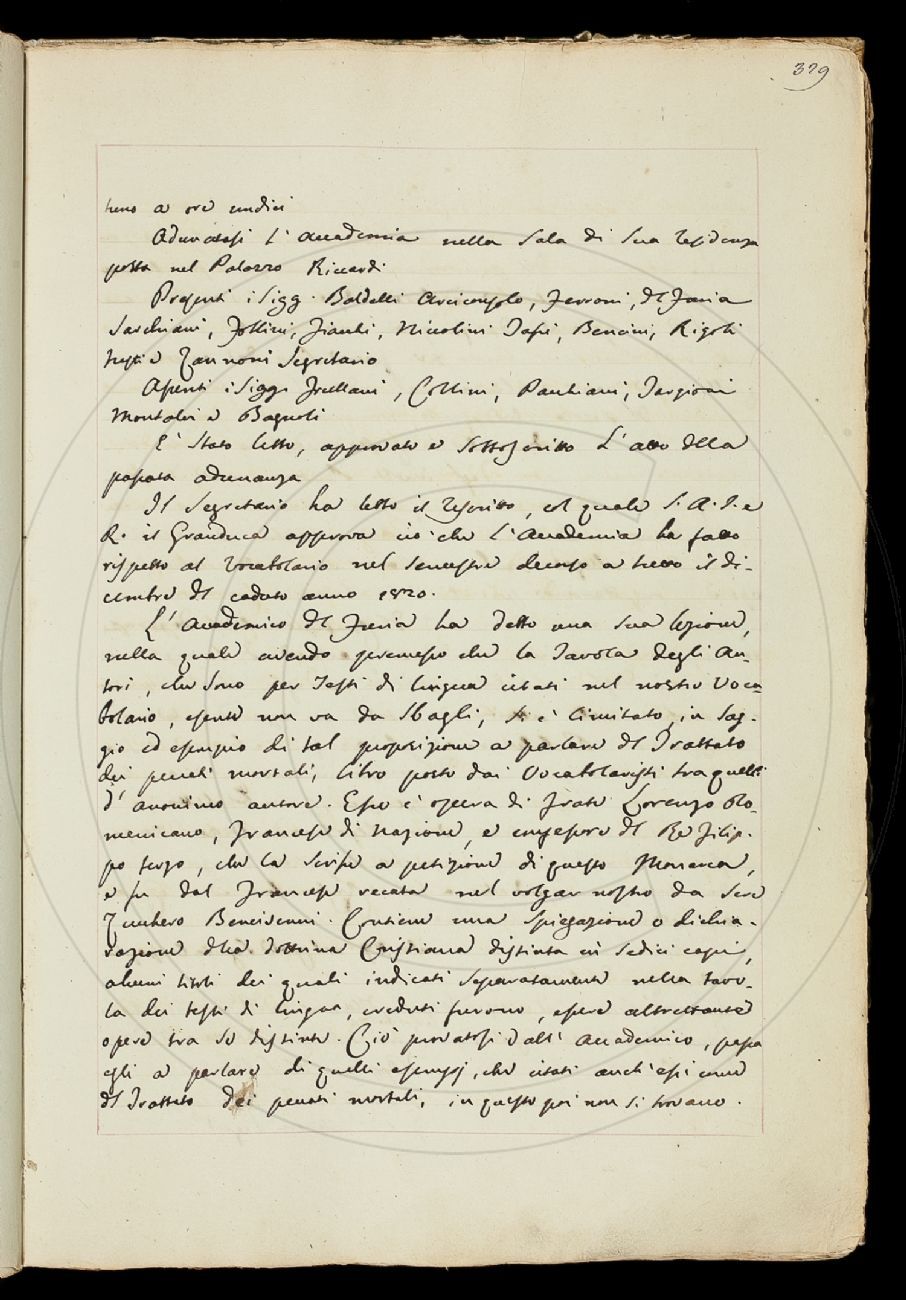 379
a ore undici
Adunatasi l'Accademia nella Sala di Sua residenza
posta nel Palazzo Riccardi
Presenti i Sigg. Baldelli Arciconsolo, Ferroni, del Furia
Sarchiani, Follini, Fiacchi, Niccolini, Bencini, Rigoli
e Zannoni Segretario
Assenti i Sigg. Frullani, Collini, Pauchiani, Targioni
Montalvi e Bagnoli
E' Stato letto, approvato e Sottoscritto L'atto della
passata adunanza
Il Segretario ha letto il rescritto, col quale S. A. I. e
R. il Granduca approva ciò che l'Accademia ha fatto
rispetto al vocabolario nel Semestre decorso a tutto il di-
cembre del caduto anno 1820.
L'Accademico del Furia ha detto una Sua lezione,
nella quale avendo premesso che la Tavola degli Au-
tori, che Sono per Testi di lingua citati nel nostro Voca-
bolario, esente non va da Sbagli, si è limitato, in Sag-
gio ed esempio di tal proposizione a parlare del Trattato
dei peccati mortali, libro posto dai Vocabolaristi tra quelli
d'anonimo autore. Esso è opera di frate Lorenzo Do-
menicano, Francese di nazione, e confessore del Re Filip-
po terzo, che la Scrisse a petizione di questo Monarca,
e fu dal Francese recata nel volgar nostro da Sere
Zucchero Bencivenni. Contiene una Spiegazione o dichia-
razione della dottrina Cristiana distinta in Sedici capi,
alcuni titoli dei quali indicati Separatamente nella tavo-
la dei testi di lingua, creduti furono, essere altrettante
opere tra Se distinte. Ciò provatosi dall'Accademico, passa
egli a parlare di quelli esempj, che citati anch'essi come
del Trattato dei peccati mortali, in questo poi non Si trovano.